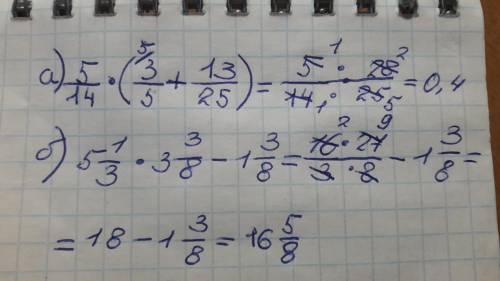 а) 5/14 · (3⁵/5 + 13/25) = 5¹ · 28²/14₁ · 25₅ = 0,4
б) 5 1/3 · 3 3/8 − 1 3/8 = 16² · 27⁹/3 · 8 − 1 3/8 =
= 18 − 1 3/8 = 16 5/8